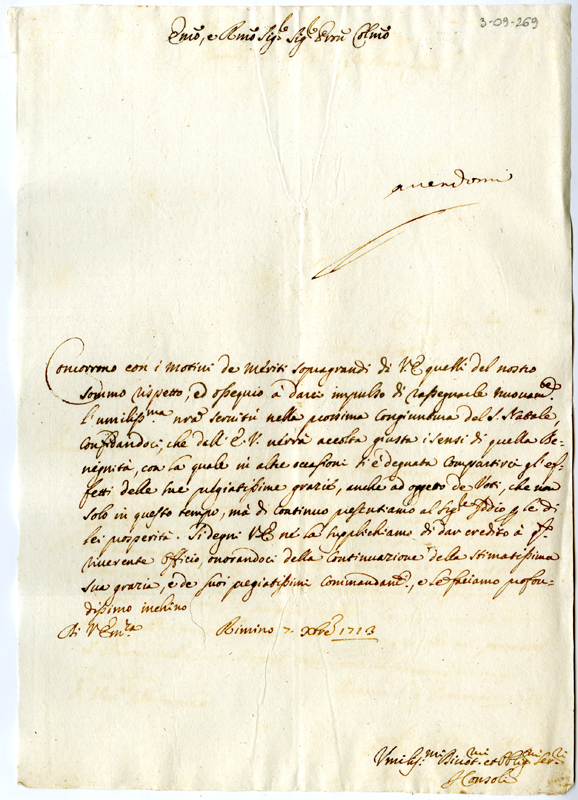 3-09-269
Emo, e Rmo Sigre Sigre Pron Colmo
Concorrono con i motivi de meriti sopragrandi di V.E. quelli del nostro
sommo rispetto, ed ossequio à darci impulso di rassegnarle nuovamte
l'umilissma nrã servitù nella prossima congiuntura del S. Natale,
confidandoci, che dall'E.V. verrà accolta giusta i sensi di quella Be-
nignità, con la quale in altre occasioni si è degnata compartirci gl'ef-
fetti delle sue pregiatissime grazie, anche ad oggetto de Voti, che non
solo in questo tempo, mà di continuo presentiamo al Sigre Iddio p le di
lei prosperità. Si degni V.E. ne la supplichiamo di dar credito à
riverente officio, onorandoci della continuazione della stimatissima
sua grazia, e de suoi pregiatissimi commandamti, e le facciamo profon-
dissimo inchino
Di V. Emza Rimino 7. Xbre 1713
Umilissmi Divotmi et Obligmi Serri
Consoli